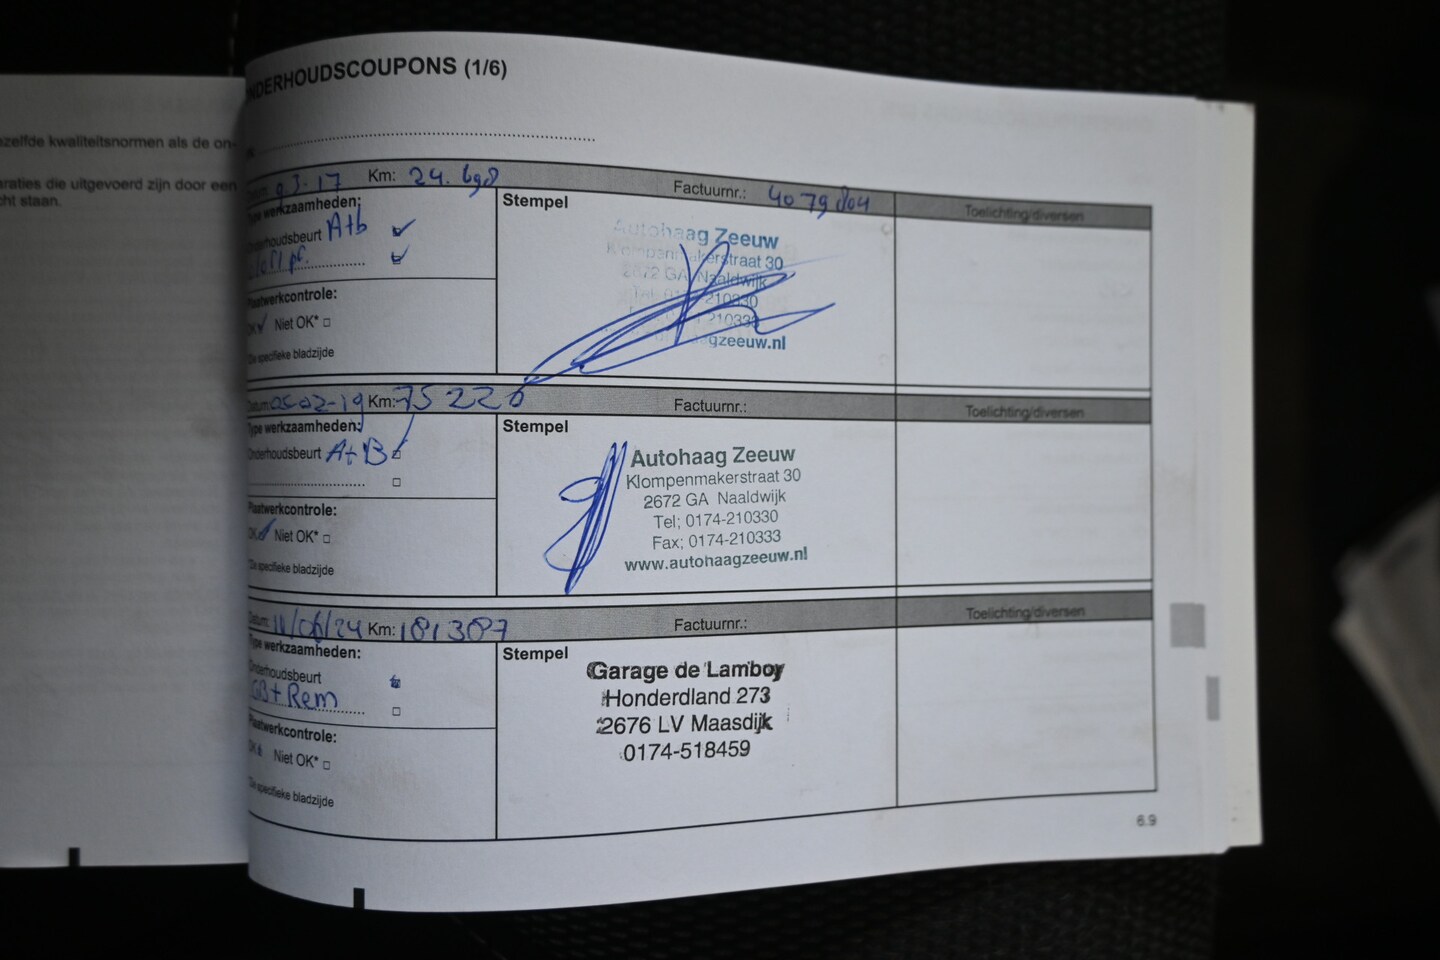 ezelfde kwaliteitsnormen als de on-
araties die uitgevoerd zijn door een
cht staan.
NDERHOUDSCOUPONS (1/6)
Datum: 9-3-17 Km: 24.698 Factuurnr.: 4079804 Toelichting/diversen
Type werkzaamheden: Stempel
Onderhoudsbeurt A+b
Plaatwerkcontrole:
OK Niet OK*
*Zie specifieke bladzijde
Autohaag Zeeuw
Klompenmakerstraat 30
2672 GA Naaldwijk
Tel; 0174-210330
0174-210333
gzeeuw.nl
Datum: 05-02-19 Km: 75226 Factuurnr.: Toelichting/diversen
Type werkzaamheden: Stempel
Onderhoudsbeurt A+B
Plaatwerkcontrole:
OK Niet OK*
*Zie specifieke bladzijde
Autohaag Zeeuw
Klompenmakerstraat 30
2672 GA Naaldwijk
Tel; 0174-210330
Fax; 0174-210333
www.autohaagzeeuw.nl
Datum: 11/06/24 Km: 181387 Factuurnr.: Toelichting/diversen
Type werkzaamheden: Stempel
Onderhoudsbeurt
GB+Rem
Plaatwerkcontrole:
OK Niet OK*
*Zie specifieke bladzijde
Garage de Lamboy
Honderdland 273
2676 LV Maasdijk
0174-518459
6.9